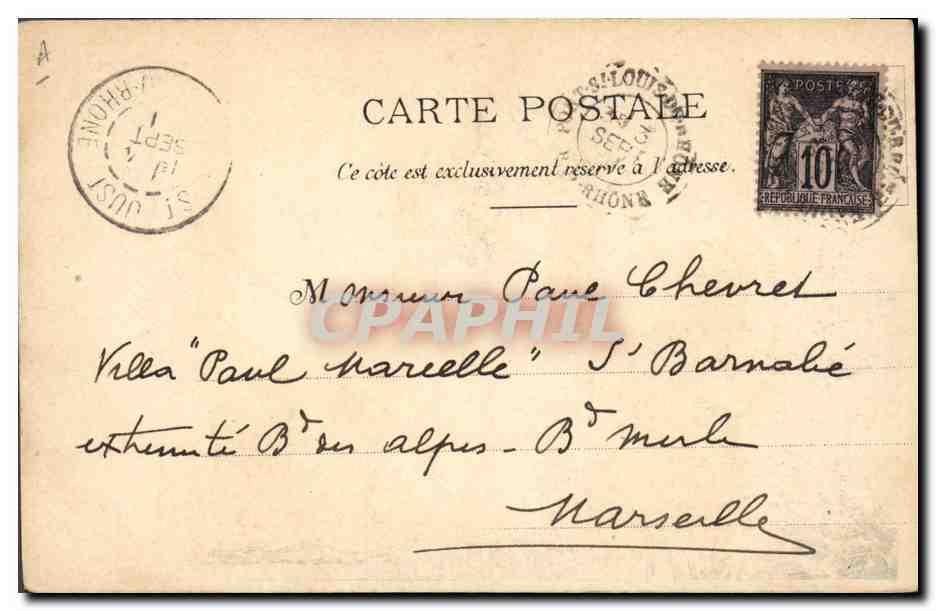 A
CARTE POSTALE
Ce côté est exclusivement réservé à l'adresse.
ST JUST
SEPT
RHONE
PORT-ST-LOUIS-DU-RHONE
SEPT
RHONE
POSTES
10
REPUBLIQUE FRANÇAISE
Monsieur Paul Chevret
Villa "Paul Marcelle" St Barnabé
extremité Bd des alpes - Bd Merle
Marseille
CPAPHIL